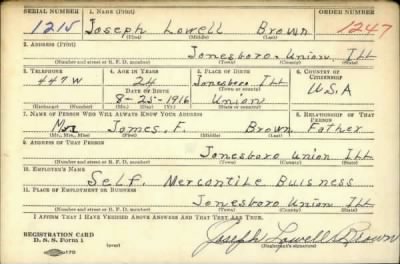 SERIAL NUMBER 1. NAME (Print) ORDER NUMBER
1215 Joseph Lowell Brown 1247
(First) (Middle) (Last)
2. ADDRESS (Print)
Jonesboro. Union, Ill
(Number and street or R. F. D. number) (Town) (County) (State)
3. TELEPHONE 4. AGE IN YEARS 5. PLACE OF BIRTH 6. COUNTRY OF CITIZENSHIP
447W 24 Jonesboro, Ill
(Town or county)
DATE OF BIRTH
8-25-1916 Union U.S.A
(Exchange) (Number) (Mo.) (Day) (Yr.) (State or country)
7. NAME OF PERSON WHO WILL ALWAYS KNOW YOUR ADDRESS 8. RELATIONSHIP OF THAT PERSON
James. F. Brown, Father
(Mr., Mrs., Miss) (First) (Middle) (Last)
9. ADDRESS OF THAT PERSON
Jonesboro Union Ill
(Number and street or R. F. D. number) (Town) (County) (State)
10. EMPLOYER'S NAME
Self. Mercantile Buisness
11. PLACE OF EMPLOYMENT OR BUSINESS
Jonesboro Union Ill
(Number and street or R. F. D. number) (Town) (County) (State)
I AFFIRM THAT I HAVE VERIFIED ABOVE ANSWERS AND THAT THEY ARE TRUE.
REGISTRATION CARD
D. S. S. Form 1 (over) Joseph Lowell Brown
(Registrant's signature)